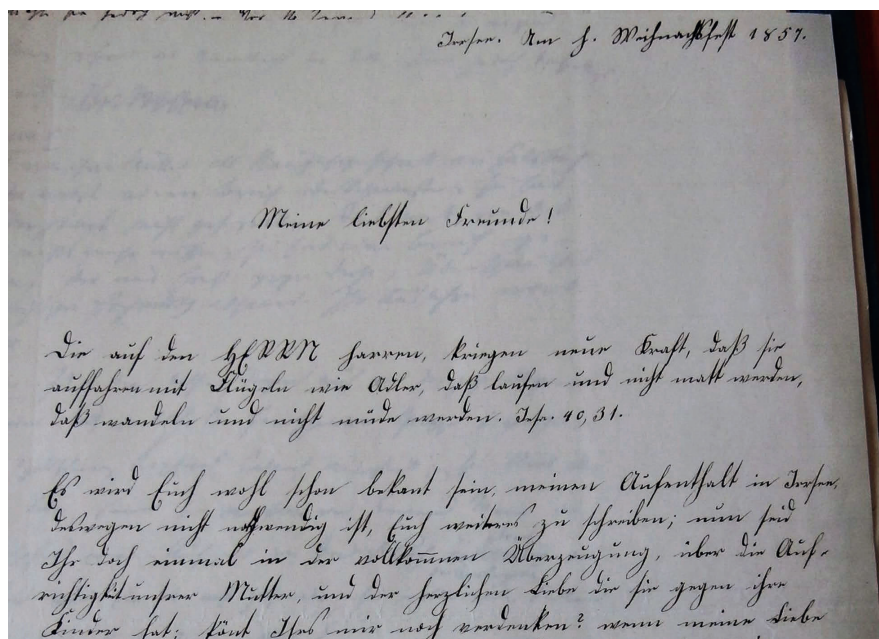 Irrsee. Am h. Weihnachtsfest 1857.
Meine liebsten Freunde!
Die auf den HERRN harren, kriegen neue Kraft, daß sie
auffahren mit Flügeln wie Adler, daß laufen und nicht matt werden,
daß wandeln und nicht müde werden. Jesa. 40,31.
Es wird Euch wohl schon bekant sein, meinen Aufenthalt in Irrsee,
deswegen nicht nothwendig ist, Euch weiteres zu schreiben; nun seid
Ihr doch einmal in der vollkom̄nen Überzeugung, über die Auf-
richtigkeit unsrer Mutter, und der herzlichen Liebe die sie gegen ihre
Kinder hat; könt Ihrs mir noch verdenken? wenn meine Liebe